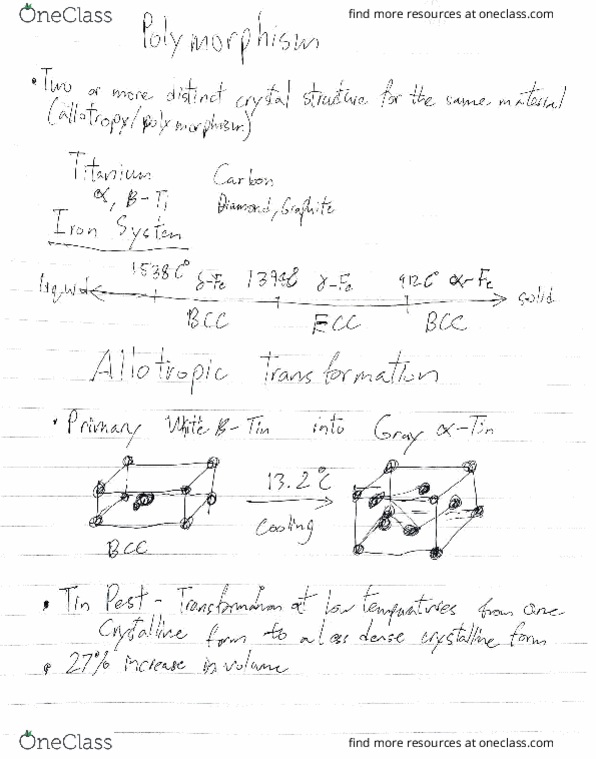 OneClass
find more resources at oneclass.com
Polymorphism
• Two or more distinct crystal structure for the same material
(allotropy/polymorphism)
Titanium Carbon
α, β-Ti Diamond, Graphite
Iron System
1538C° δ-Fe 1394C γ-Fe 912C° α-Fe
liquid solid
BCC FCC BCC
Allotropic transformation
• Primary White β-Tin into Gray α-Tin
13.2°C
Cooling
BCC
• Tin Pest - Transformation at low temperatures from one
crystalline form to a less dense crystalline form
• 27% increase in volume
OneClass
find more resources at oneclass.com